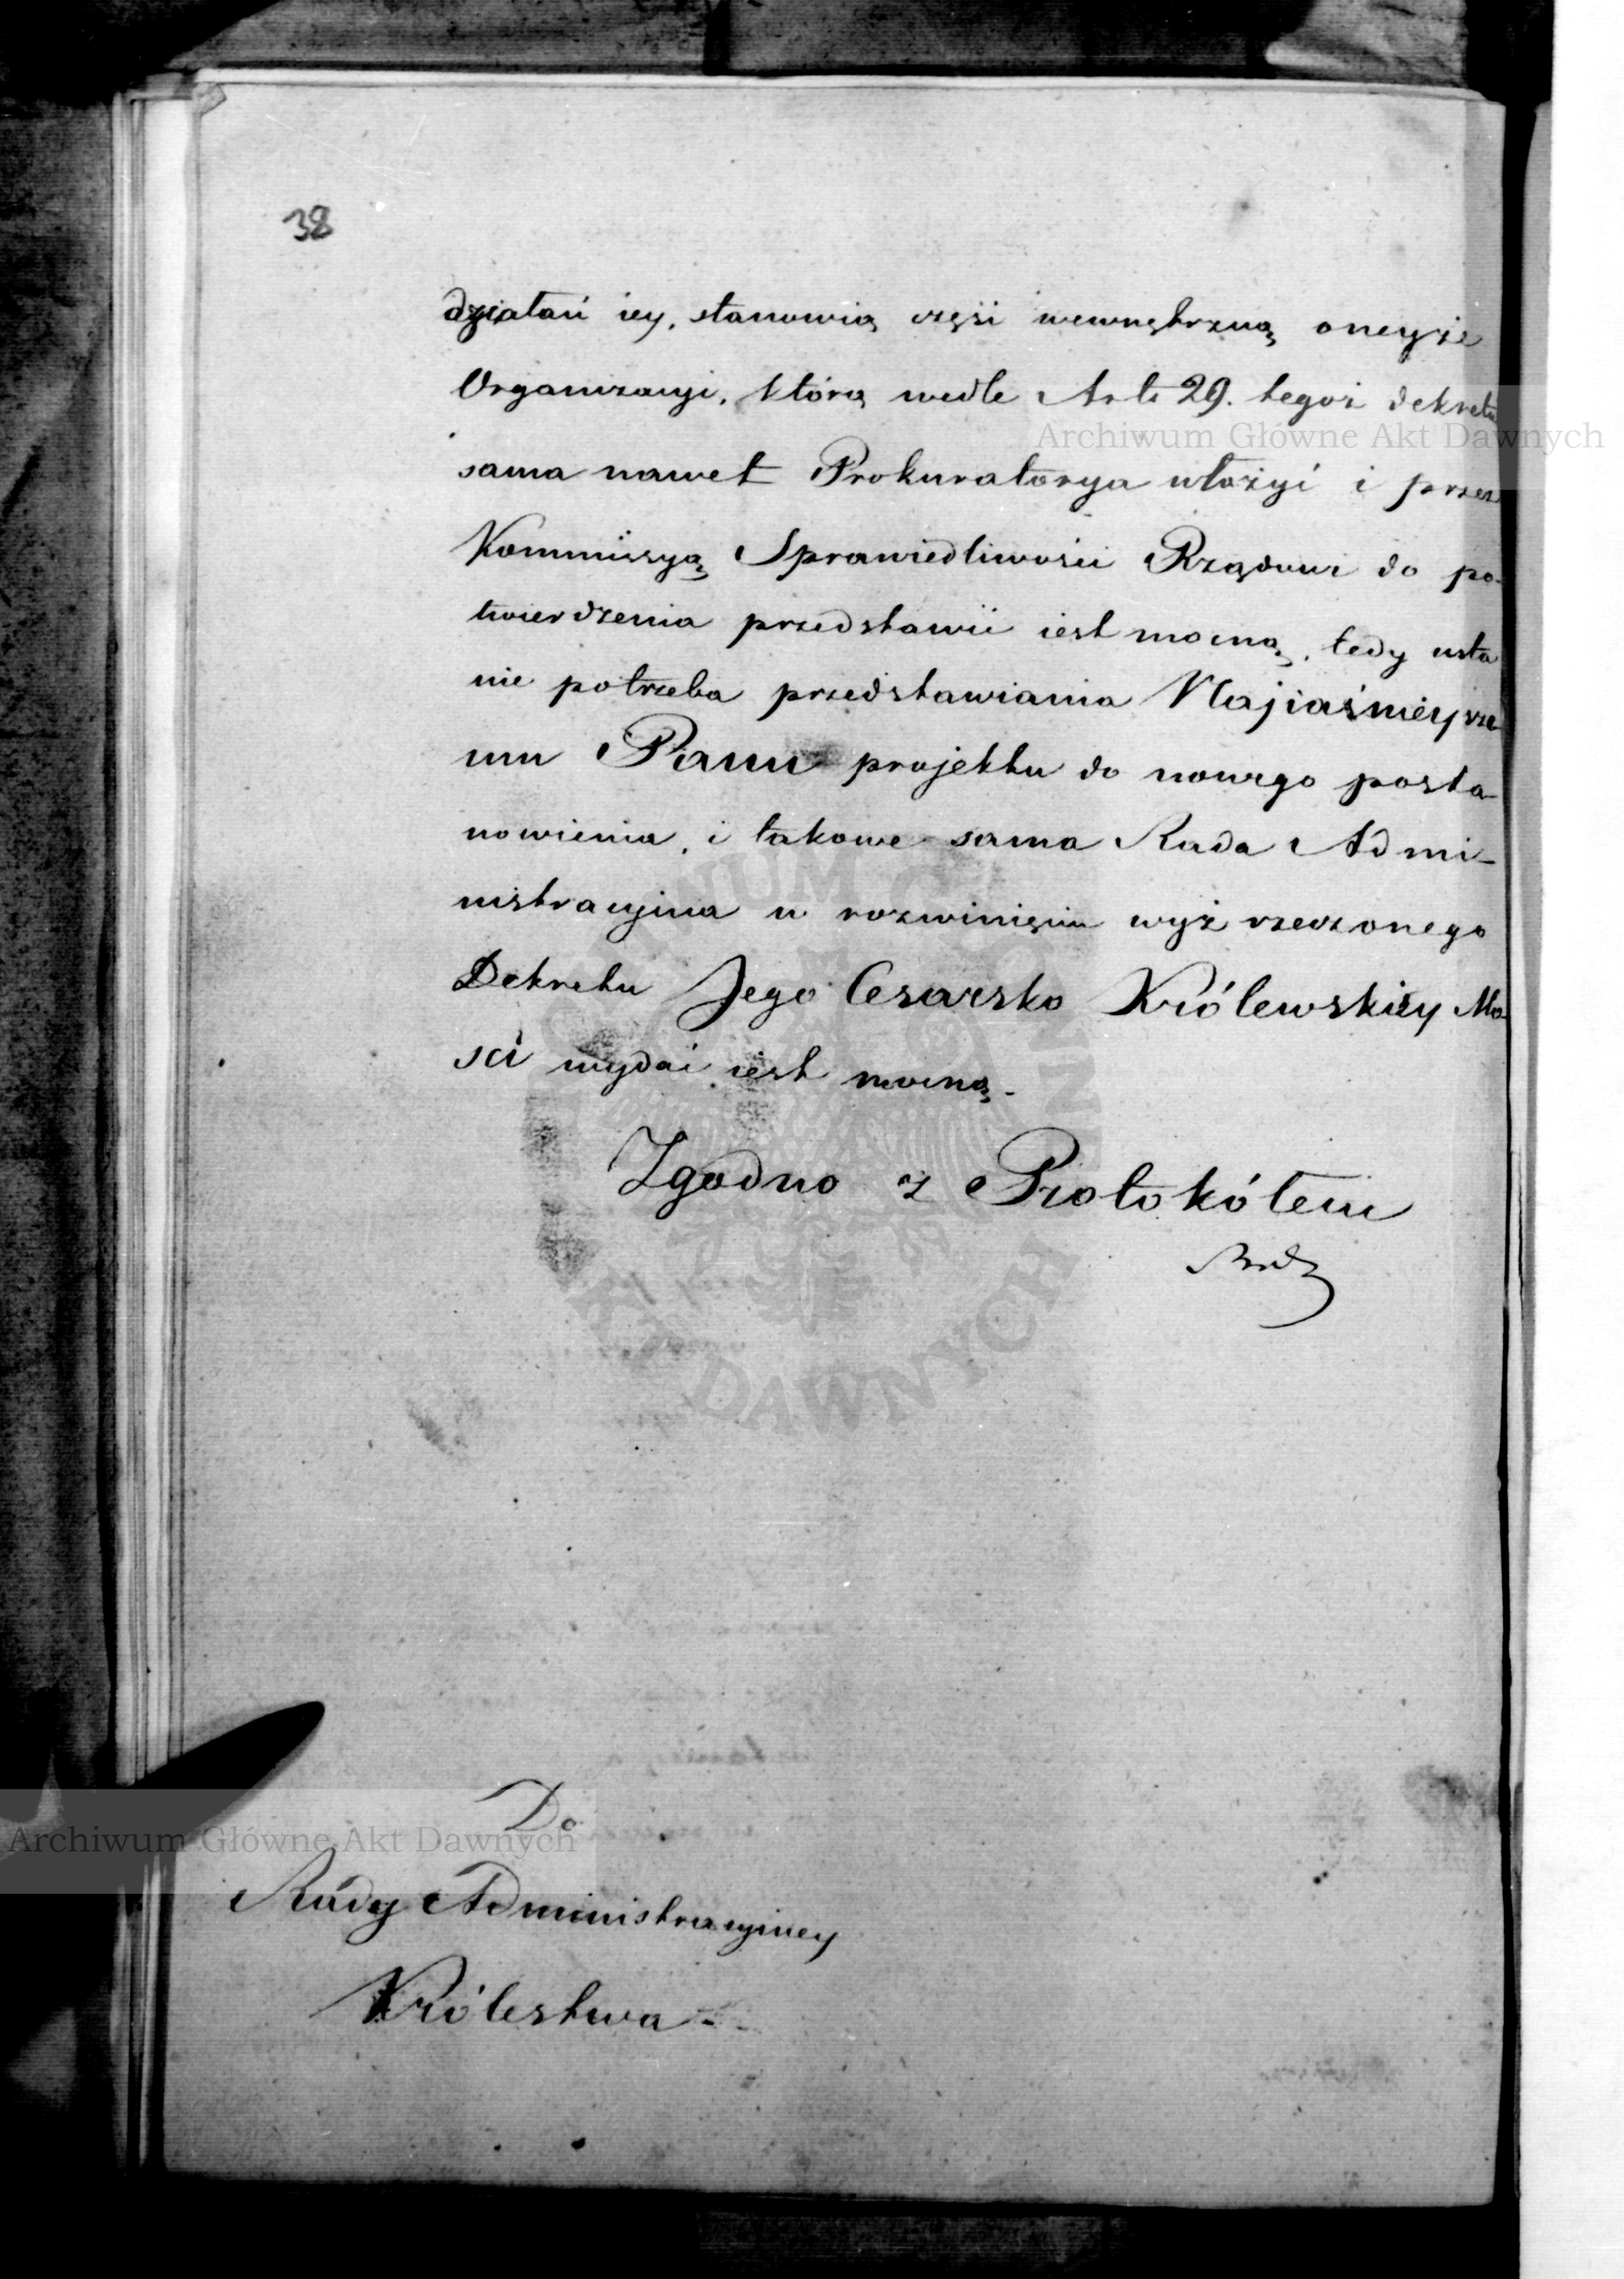 38
działań iey, stanowią część wewnętrzną oneyże
Organizacyi, którą wedle Art: 29. tegoż dekretu
sama nawet Prokuratorya ułożyć i przez
Kommissyą Sprawiedliwości Rządowi do po-
twierdzenia przedstawić iest mocną, tedy usta
nie potrzeba przedstawiania Najiaśnieysze
mu Panu projektu do nowego posta-
nowienia, i takowe sama Rada Admi-
nistracyjna w rozwinięciu wyż rzeczonego
Dekretu Jego Cesarsko Królewskiey Mo-
ści wydać iest mocną.
Zgodno z Protokółem
Do
Rady Administracyiney
Królestwa
Archiwum Główne Akt Dawnych
Archiwum Główne Akt Dawnych